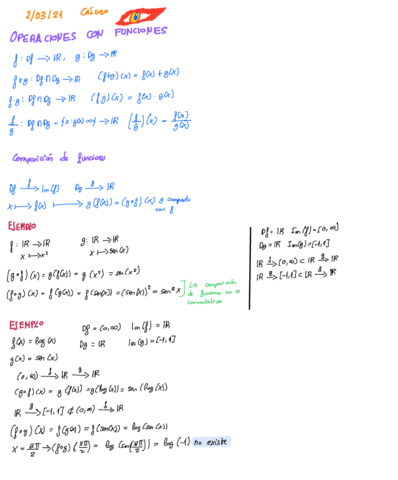 2/03/21 CÁLCULO
OPERACIONES CON FUNCIONES
f: Df → IR, g: Dg → IR
f+g: Df ∩ Dg → IR (f+g)(x) = f(x) + g(x)
f·g: Df ∩ Dg → IR (f·g)(x) = f(x) · g(x)
f/g: Df ∩ Dg - {x: g(x)=0} → IR (f/g)(x) = f(x)/g(x)
Composición de funciones
Df →f Im(f) Dg →g IR
x ↦ f(x) ⟼ g(f(x)) = (g∘f)(x) g compuesta con f
EJEMPLO
f: IR → IR g: IR → IR
x ↦ x² x ↦ sen(x)
(g∘f)(x) = g(f(x)) = g(x²) = sen(x²)
(f∘g)(x) = f(g(x)) = f(sen(x)) = (sen(x))² = sen²x
La composición de funciones no es conmutativa
Df = IR Im(f) = [0,∞)
Dg = IR Im(g) = [-1,1]
IR →f [0,∞) ⊂ IR →g IR
IR →g [-1,1] ⊂ IR →f IR
EJEMPLO
Df = (0,∞) Im(f) = IR
f(x) = log(x) Dg = IR Im(g) = [-1,1]
g(x) = sen(x)
(0,∞) →f IR →g IR
(g∘f)(x) = g(f(x)) = g(log(x)) = sen(log(x))
IR →g [-1,1] ⊄ (0,∞) →f IR
(f∘g)(x) = f(g(x)) = f(sen(x)) = log(sen(x))
x = 3π/2 → (f∘g)(3π/2) = log(sen(3π/2)) = log(-1) no existe